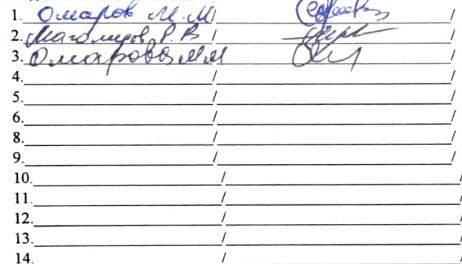 1. Омаров М.М / /
2. Магомедов Р.В / /
3. Омарова М М / /
4. / /
5. / /
6. / /
8. / /
9. / /
10. / /
11. / /
12. / /
13. / /
14. / /